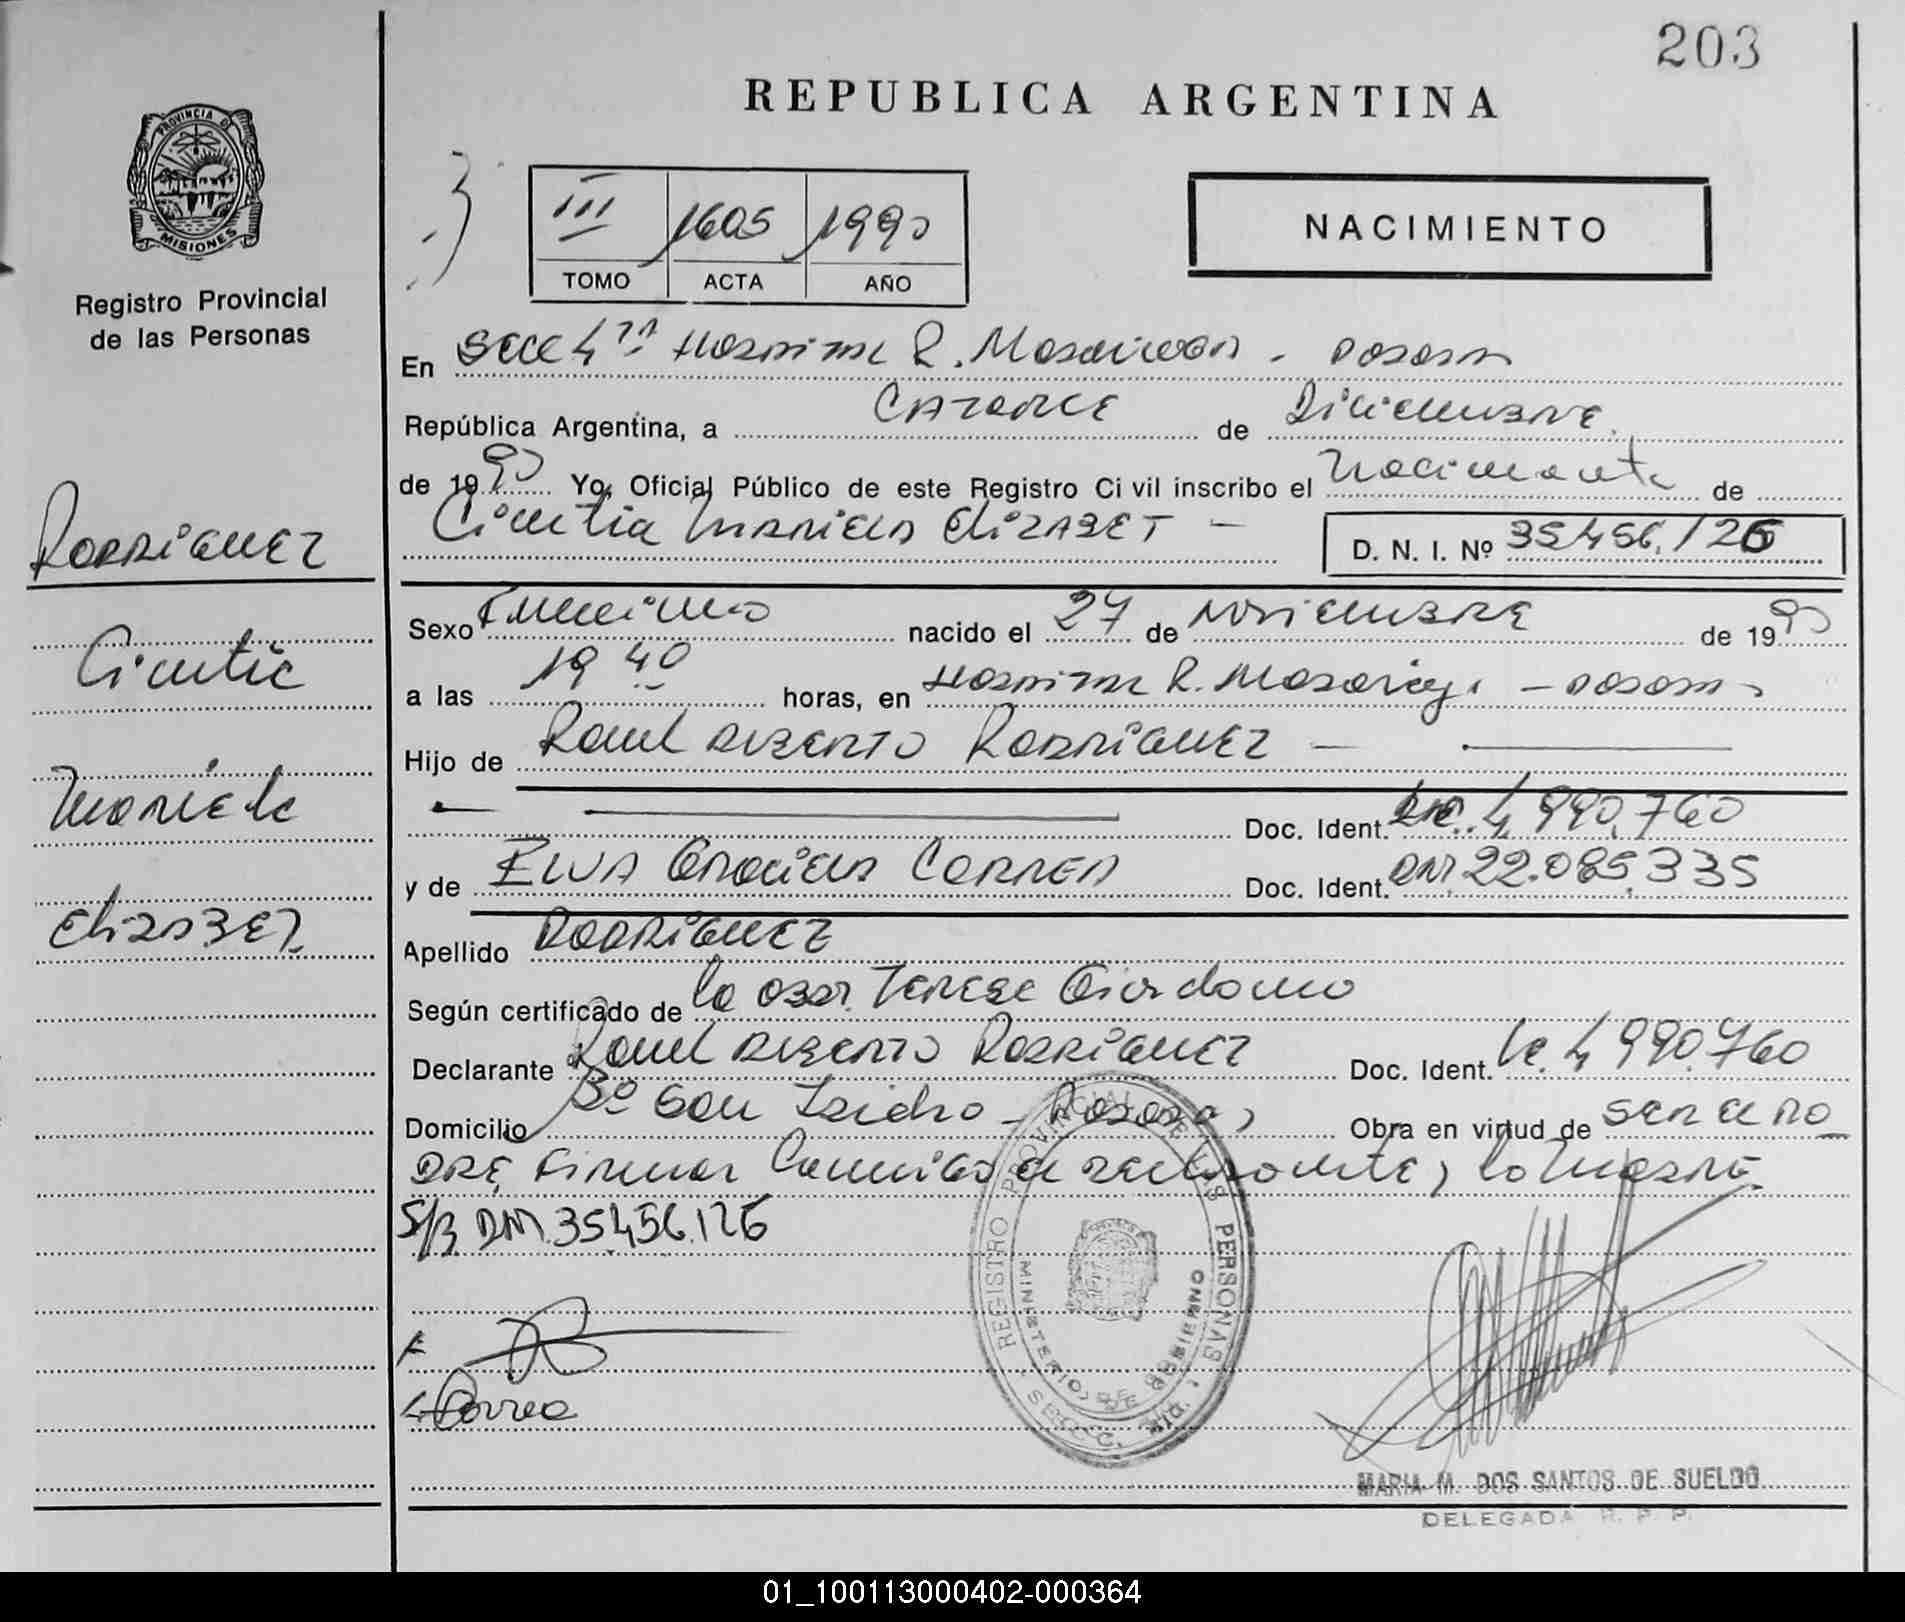 203
REPUBLICA ARGENTINA
PROVINCIA DE
MISIONES
Registro Provincial
de las Personas
III 1605 1990
TOMO ACTA AÑO
NACIMIENTO
En Secc 4ta Hospital R. Madariaga - Posadas
República Argentina, a Catorce de Diciembre
de 1990 Yo, Oficial Público de este Registro Civil inscribo el Nacimiento de
Cintia Mariela Elizabet -
D. N. I. Nº 35456.126
Rodriguez
Cintia
Mariela
Elizabet
Sexo Femenino nacido el 27 de Noviembre de 1990
a las 19 40 horas, en Hospital R. Madariaga - Posadas
Hijo de Raul Alberto Rodriguez -
Doc. Ident. 4.990.760
y de Elva Graciela Correa Doc. Ident. DNI 22.085.335
Apellido Rodriguez
Según certificado de la Obst. Teresa Giordano
Declarante Raul Alberto Rodriguez Doc. Ident. Le. 4.990.760
Domicilio Bº San Isidro - Posadas Obra en virtud de ser el pa
dre, Firman la madre
S/B DNI 35456.126
Correa
REGISTRO PROVINCIAL DE LAS PERSONAS
MINISTERIO DE GOBIERNO
SECC. 4ta.
MARIA M. DOS SANTOS DE SUELDO
DELEGADA R. P. P.
01_100113000402-000364